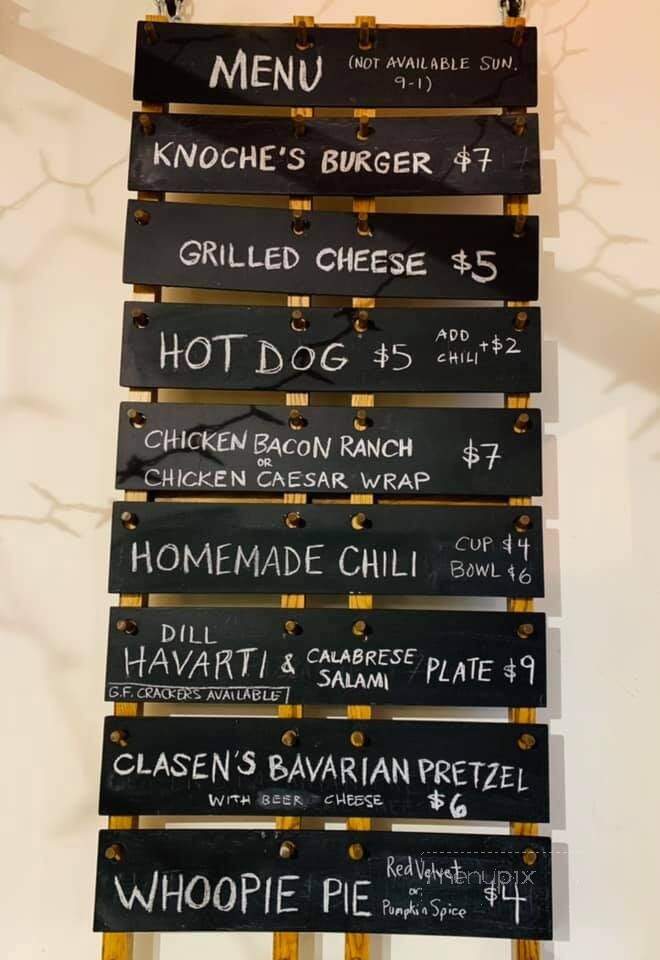 MENU (NOT AVAILABLE SUN.
9-1)
KNOCHE'S BURGER $7
GRILLED CHEESE $5
HOT DOG $5 ADD
CHILI +$2
CHICKEN BACON RANCH
OR
CHICKEN CAESAR WRAP
$7
HOMEMADE CHILI
CUP $4
BOWL $6
DILL
HAVARTI & CALABRESE
SALAMI
PLATE $9
G.F. CRACKERS AVAILABLE
CLASEN'S BAVARIAN PRETZEL
WITH BEER CHEESE $6
WHOOPIE PIE
Red Velvet
or
Pumpkin Spice
$4
menupix